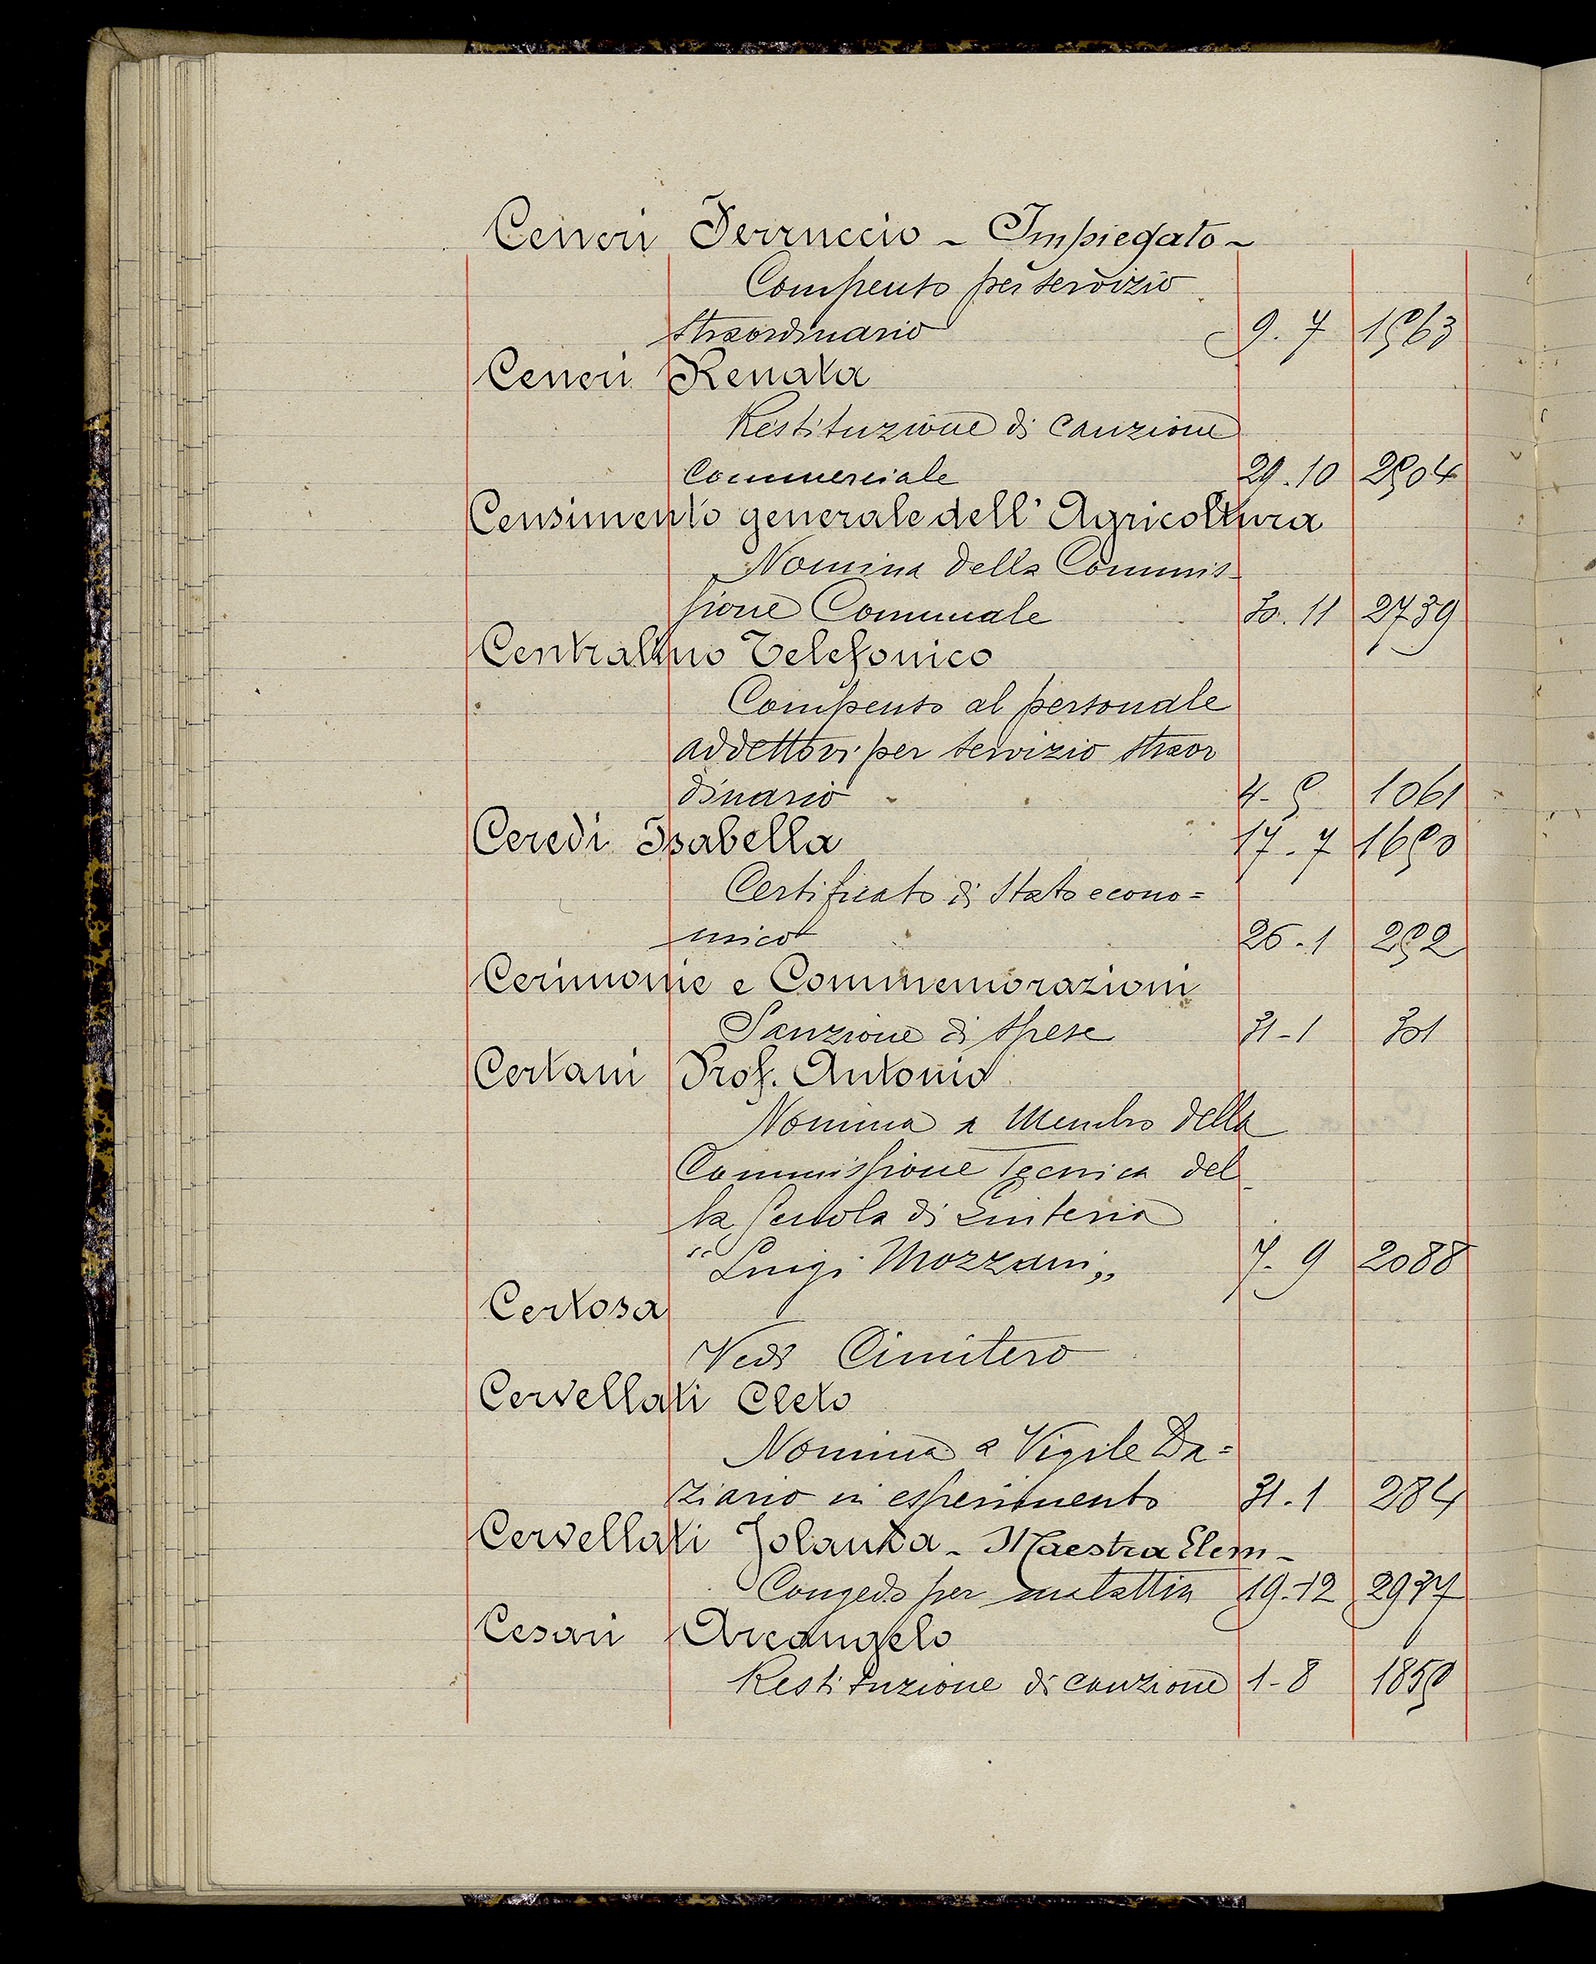 Ceneri Ferruccio - Impiegato -
Compenso per servizio
straordinario 9. 7 1563
Ceneri Renata
Restituzione di cauzione
Commerciale 29. 10 2504
Censimento generale dell' Agricoltura
Nomina della Commis-
sione Comunale 30. 11 2739
Centralino Telefonico
Compenso al personale
addettovi per servizio straor
dinario 4- 5 1061
Ceredi Isabella 17. 7 1650
Certificato di Stato econo=
mico 26. 1 252
Cerimonie e Commemorazioni
Sanzione di spese 31-1 301
Certani Prof. Antonio
Nomina a Membro della
Commissione Tecnica del
la Scuola di Liuteria
"Luigi Mozzani„ 7. 9 2088
Certosa
Vedi Cimitero
Cervellati Cleto
Nomina a Vigile Da=
ziario in esperimento 31. 1 284
Cervellati Jolanta - Maestra Elem -
Congedo per malattia 19-12 2977
Cesari Arcangelo
Restituzione di cauzione 1-8 1850